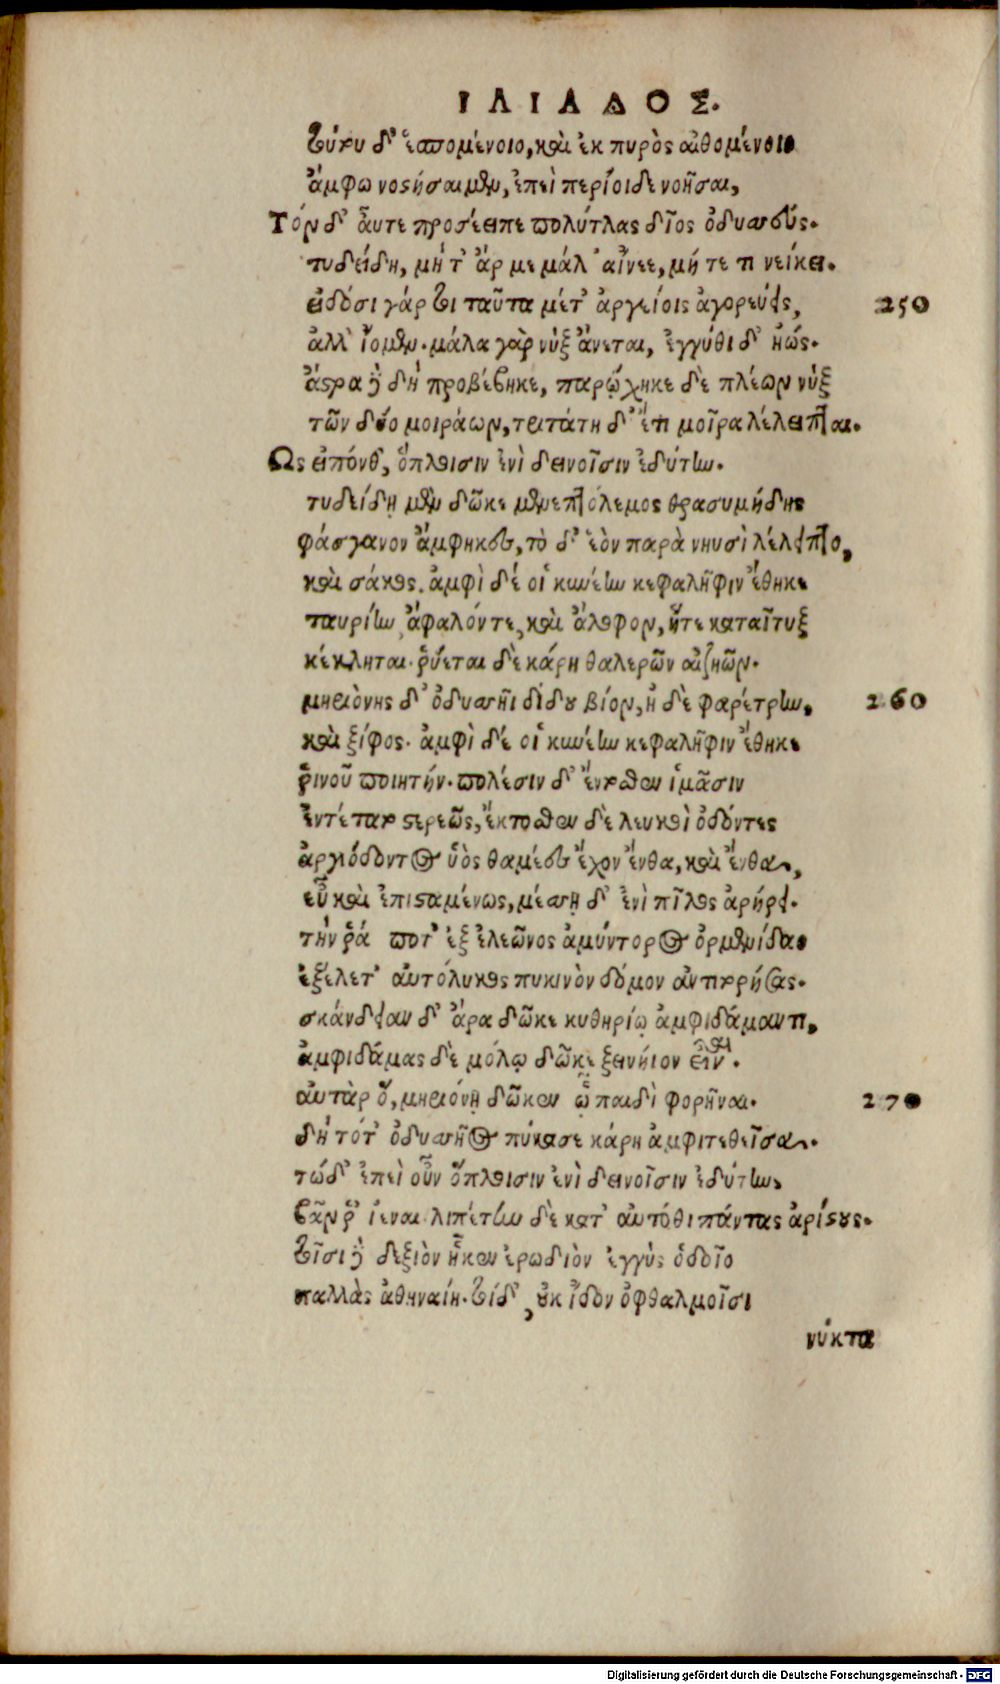 ΙΛΙΑΔΟΣ.
τούτου δ' ἑσπομένοιο, καὶ ἐκ πυρὸς αἰθομένοιο
ἄμφω νοστήσαιμεν, ἐπεὶ περίοιδε νοῆσαι,
Τὸν δ' αὖτε προσέειπε πολύτλας δῖος ὀδυσσεύς.
τυδείδη, μήτ' ἄρ με μάλ' αἴνεε, μήτε τι νείκει.
εἰδόσι γάρ τοι ταῦτα μέτ' ἀργείοις ἀγορεύεις, 250
ἀλλ' ἴομεν. μάλα γὰρ νὺξ ἄνεται, ἐγγύθι δ' ἠώς.
ἄστρα δὲ δὴ προβέβηκε, παρῴχηκε δὲ πλέων νὺξ
τῶν δύο μοιράων, τριτάτη δ' ἔτι μοῖρα λέλειπται.
Ως εἰπόνθ', ὅπλοισιν ἐνὶ δεινοῖσιν ἐδύτην.
τυδείδῃ μὲν δῶκε μενεπτόλεμος θρασυμήδης
φάσγανον ἄμφηκες, τὸ δ' ἑὸν παρὰ νηυσὶ λέλειπτο,
καὶ σάκος. ἀμφὶ δέ οἱ κυνέην κεφαλῆφιν ἔθηκε
ταυρίην, ἄφαλόν τε, καὶ ἄλοφον, ἥτε καταῖτυξ
κέκληται. ῥύεται δὲ κάρη θαλερῶν αἰζηῶν.
μηριόνης δ' ὀδυσσῆϊ δίδου βίον, ἠδὲ φαρέτρην, 260
καὶ ξίφος. ἀμφὶ δέ οἱ κυνέην κεφαλῆφιν ἔθηκε
ῥινοῦ ποιητήν. πολέσιν δ' ἔντοσθεν ἱμᾶσιν
ἐντέτατο στερεῶς, ἔκτοσθεν δὲ λευκοὶ ὀδόντες
ἀργιόδοντος ὑὸς θαμέες ἔχον ἔνθα, καὶ ἔνθα,
εὖ καὶ ἐπισταμένως, μέσσῃ δ' ἐνὶ πῖλος ἀρήρει.
τήν ῥά ποτ' ἐξ ἐλεῶνος ἀμύντορος ὀρμενίδαο
ἐξέλετ' αὐτόλυκος πυκινὸν δόμον ἀντιτορήσας.
σκάνδειαν δ' ἄρα δῶκε κυθηρίῳ ἀμφιδάμαντι,
ἀμφιδάμας δὲ μόλῳ δῶκε ξεινήιον εἶναι.
αὐτὰρ ὅ, μηριόνῃ δῶκεν ᾧ παιδὶ φορῆναι. 270
δὴ τότ' ὀδυσσῆος πύκασε κάρη ἀμφιτεθεῖσα.
τώδ' ἐπεὶ οὖν ὅπλοισιν ἐνὶ δεινοῖσιν ἐδύτην,
βᾶν ῥ' ἰέναι λιπέτην δὲ κατ' αὐτόθι πάντας ἀρίστους.
τοῖσι δὲ δεξιὸν ἧκεν ἐρωδιὸν ἐγγὺς ὁδοῖο
παλλὰς ἀθηναίη. τοὶ δ', οὐκ ἴδον ὀφθαλμοῖσι
νύκτα
Digitalisierung gefördert durch die Deutsche Forschungsgemeinschaft - DFG